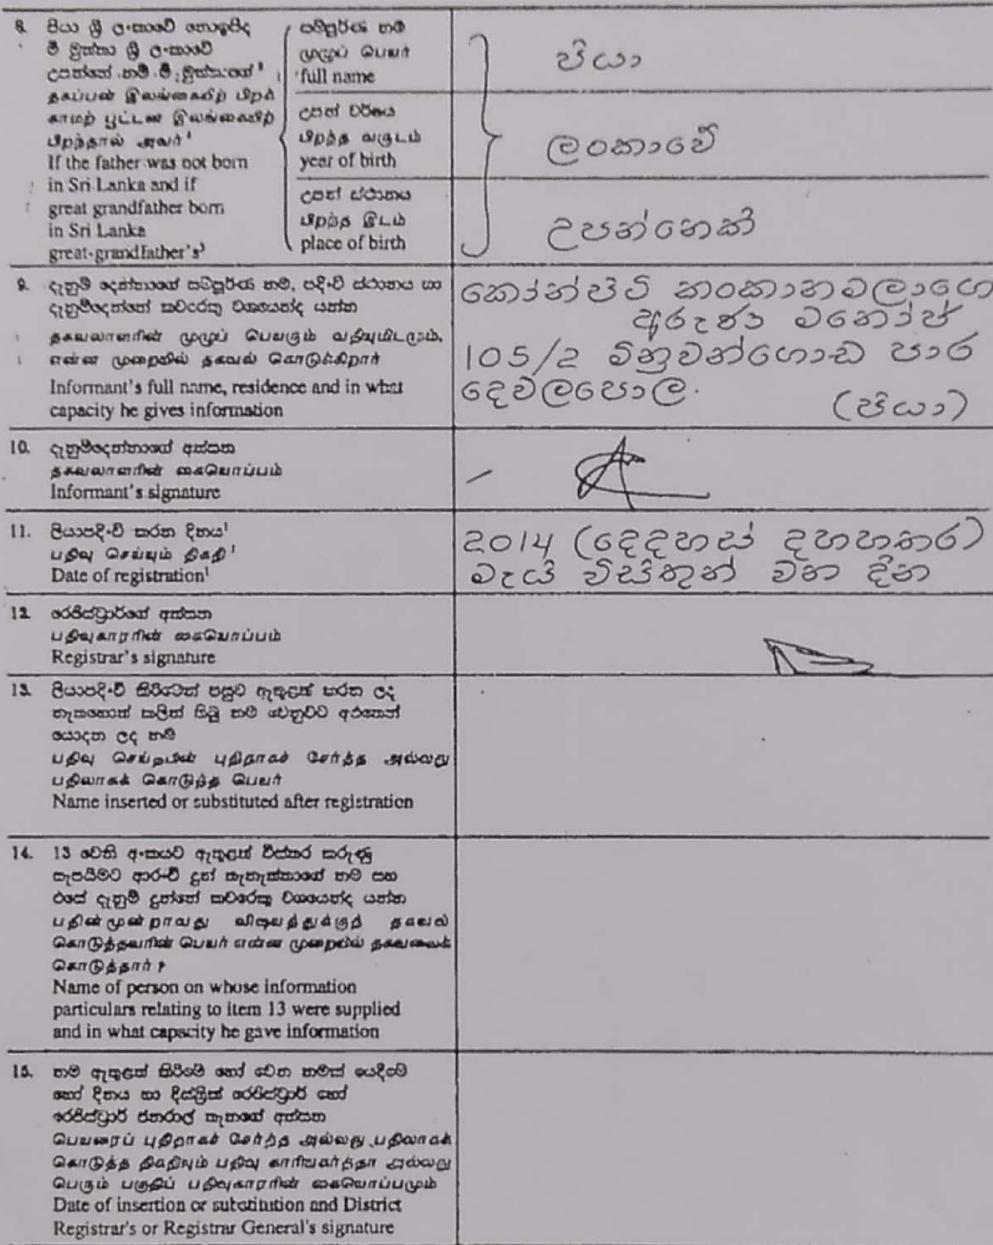 8. පියා ශ්‍රී ලංකාවේ නොඉපිද
මී මුත්තා ශ්‍රී ලංකාවේ
උපන්නේ නම් මී මුත්තාගේ³
தகப்பன் இலங்கையிற் பிறக்
காமற் பூட்டன் இலங்கையிற்
பிறந்தால் அவர்
If the father was not born
in Sri Lanka and if
great grandfather born
in Sri Lanka
great-grandfather's³
සම්පූර්ණ නම
முழுப் பெயர்
full name
උපන් වර්ෂය
பிறந்த வருடம்
year of birth
උපන් ස්ථානය
பிறந்த இடம்
place of birth
පියා
ලංකාවේ
උපන්නෙකි
9. දැනුම් දෙන්නාගේ සම්පූර්ණ නම, පදිංචි ස්ථානය හා
දැනුම්දෙන්නේ කවරෙකු වශයෙන්ද යන්න
தகவலாளரின் முழுப் பெயரும் வதியுமிடமும்,
என்ன முறையில் தகவல் கொடுக்கிறார்
Informant's full name, residence and in what
capacity he gives information
කෝන්පිටි කංකානමලාගෙ
අරුණ මනෝජ්
105/2 මිනුවන්ගොඩ පාර
දෙවලපොල.
(පියා)
10. දැනුම්දෙන්නාගේ අත්සන
தகவலாளரின் கையொப்பம்
Informant's signature
11. ලියාපදිංචි කරන දිනය¹
பதிவு செய்யும் திகதி¹
Date of registration¹
2014 (දෙදහස් දහහතර)
මැයි විසිතුන් වන දින
12. රෙජිස්ට්‍රාර්ගේ අත්සන
பதிவுகாரரின் கையொப்பம்
Registrar's signature
13. ලියාපදිංචි කිරීමෙන් පසුව ඇතුළත් කරන ලද
නැතහොත් කලින් තිබූ නම වෙනුවට අරතෙන්
යොදන ලද නම
பதிவு செய்தபின் புதிதாகச் சேர்த்த அல்லது
பதிலாகக் கொடுத்த பெயர்
Name inserted or substituted after registration
14. 13 වෙනි අංකයට ඇතුළත් විස්තර කරුණු
සැපයීමට ආරංචි දුන් තැනැත්තාගේ නම සහ
එසේ දැනුම් දුන්නේ කවරෙකු වශයෙන්ද යන්න
பதின்மூன்றாவது விஷயத்துக்குத் தகவல்
கொடுத்தவரின் பெயர் என்ன முறையில் தகவலைக்
கொடுத்தார்?
Name of person on whose information
particulars relating to item 13 were supplied
and in what capacity he gave information
15. නම ඇතුළත් කිරීමේ හෝ වෙන නමක් යෙදීමේ
හෝ දිනය හා දිස්ත්‍රික් රෙජිස්ට්‍රාර් හෝ
රෙජිස්ට්‍රාර් ජනරාල් තැනගේ අත්සන
பெயரைப் புதிதாகச் சேர்த்த அல்லது பதிலாகக்
கொடுத்த திகதியும் பதிவு காரியகர்த்தா அல்லது
பெரும் பகுதிப் பதிவுகாரரின் கையொப்பமும்
Date of insertion or substitution and District
Registrar's or Registrar General's signature